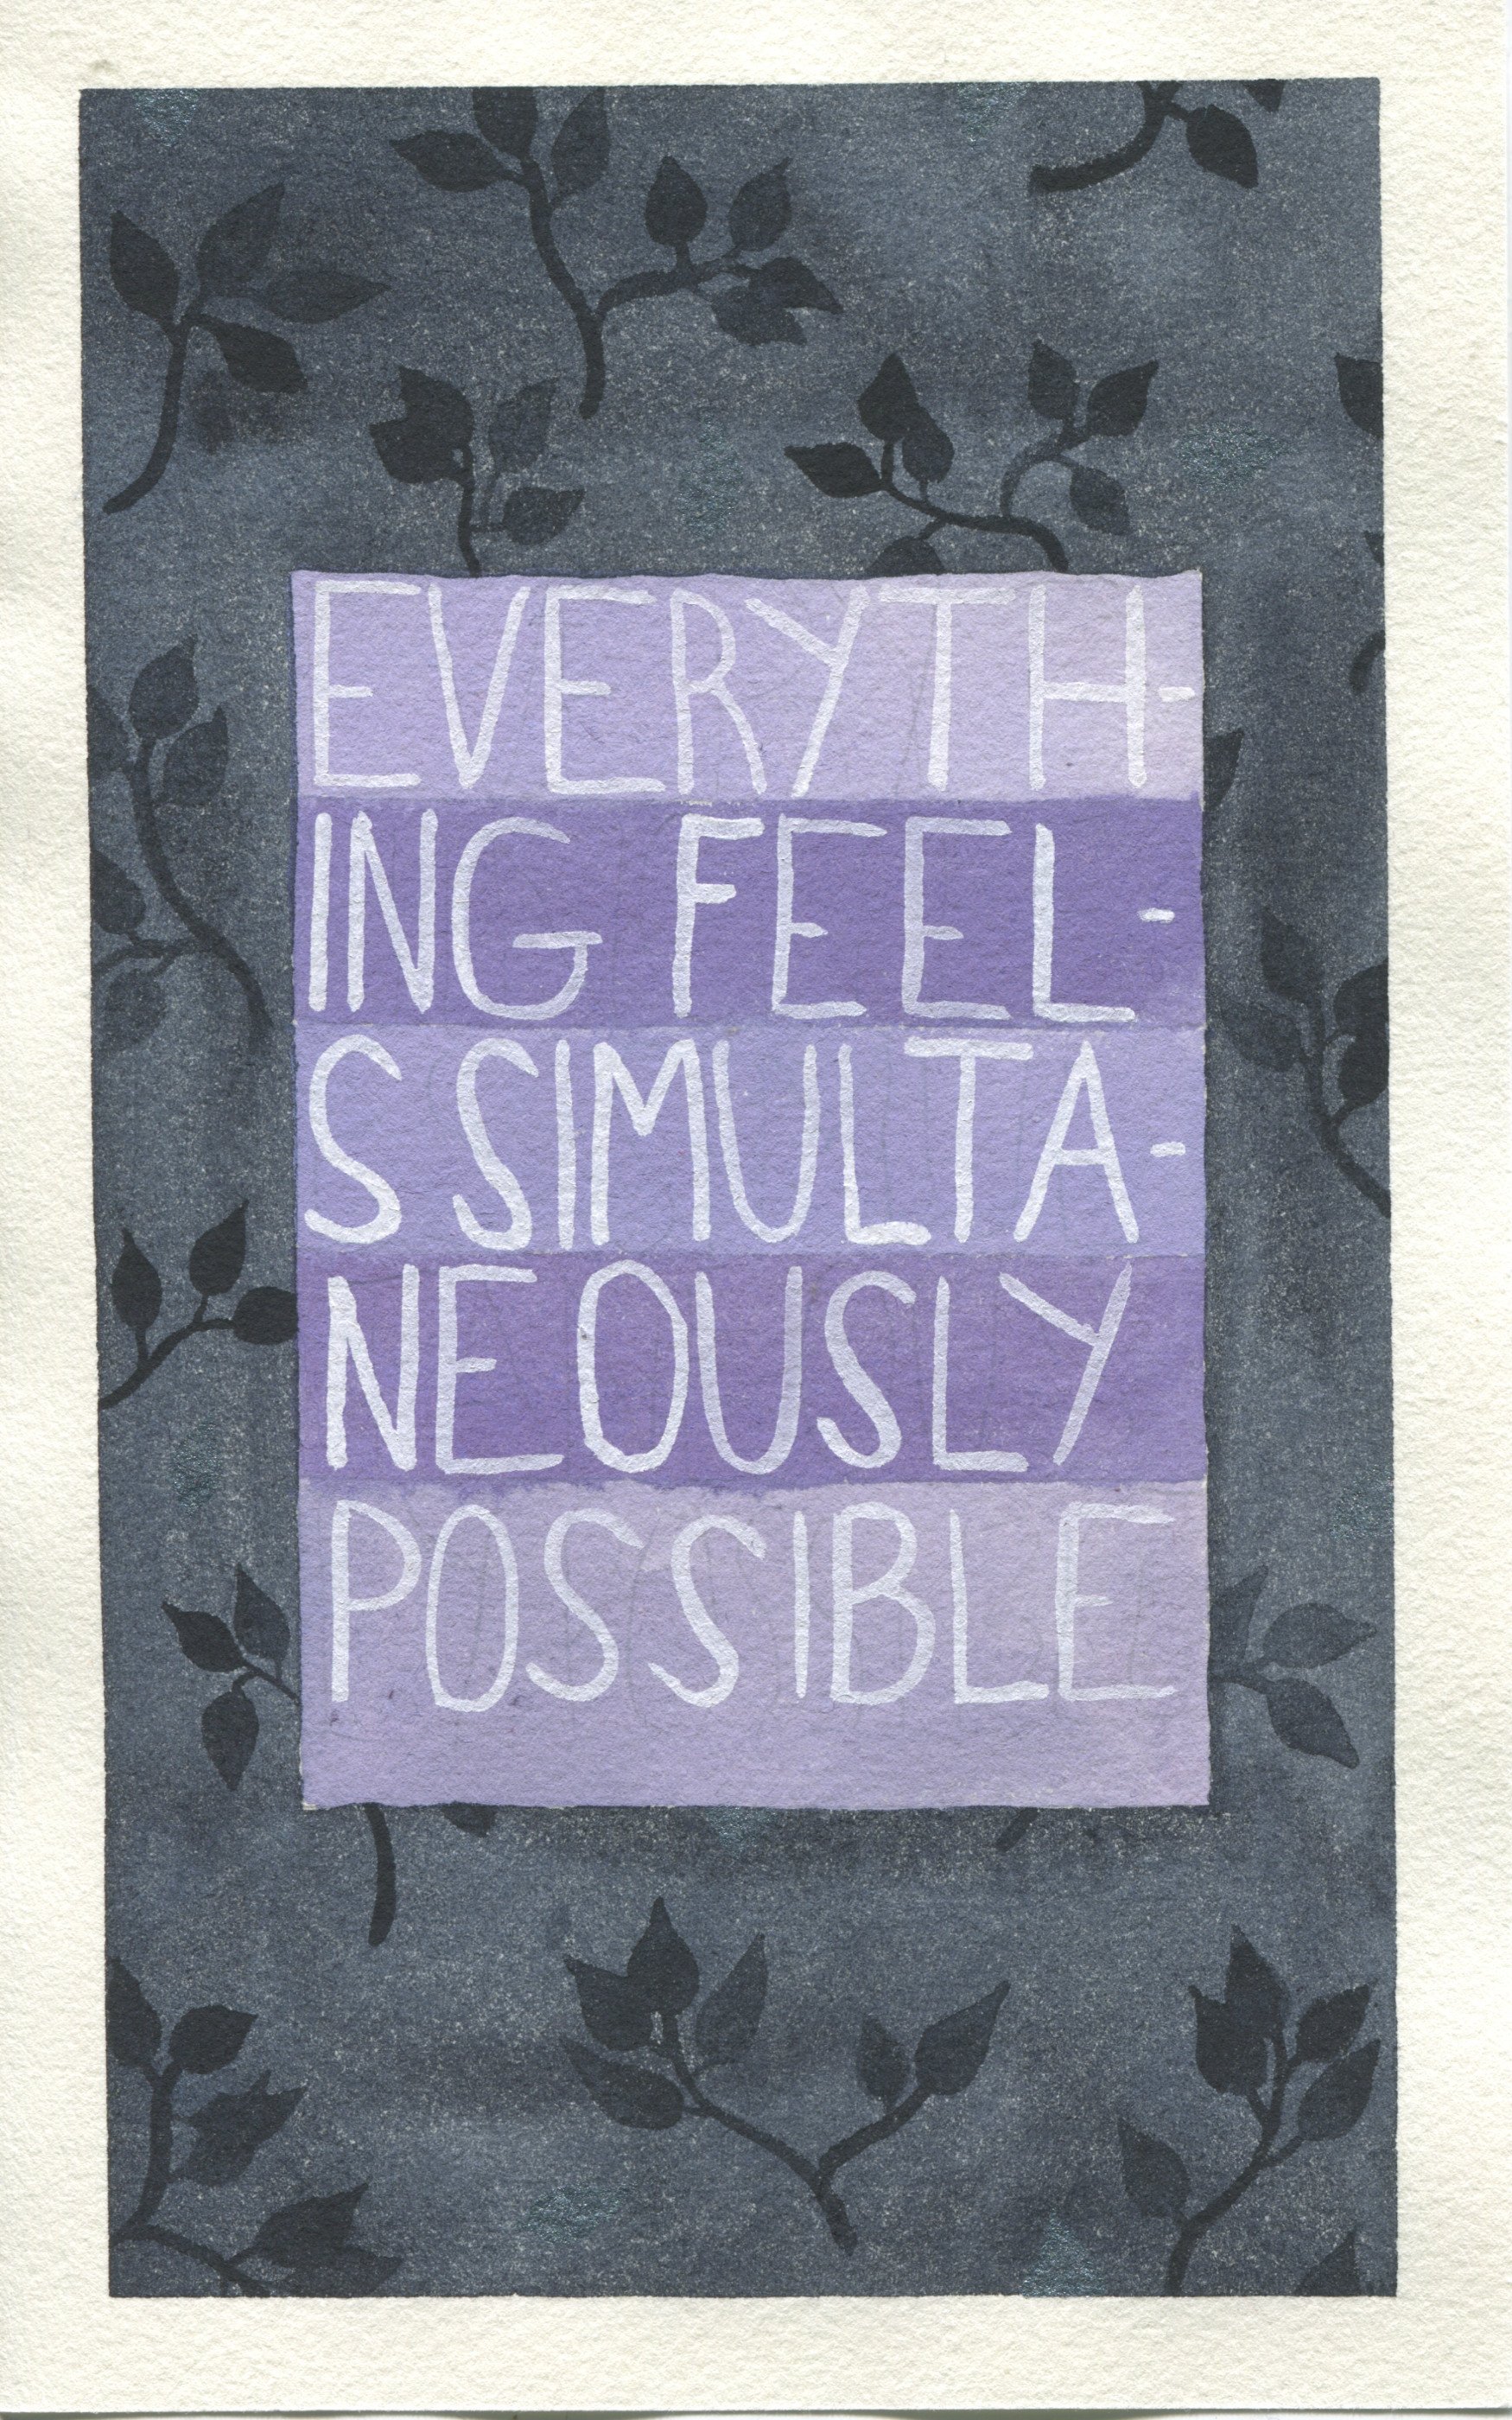 EVERYTH-
ING FEEL-
S SIMULTA-
NEOUSLY
POSSIBLE